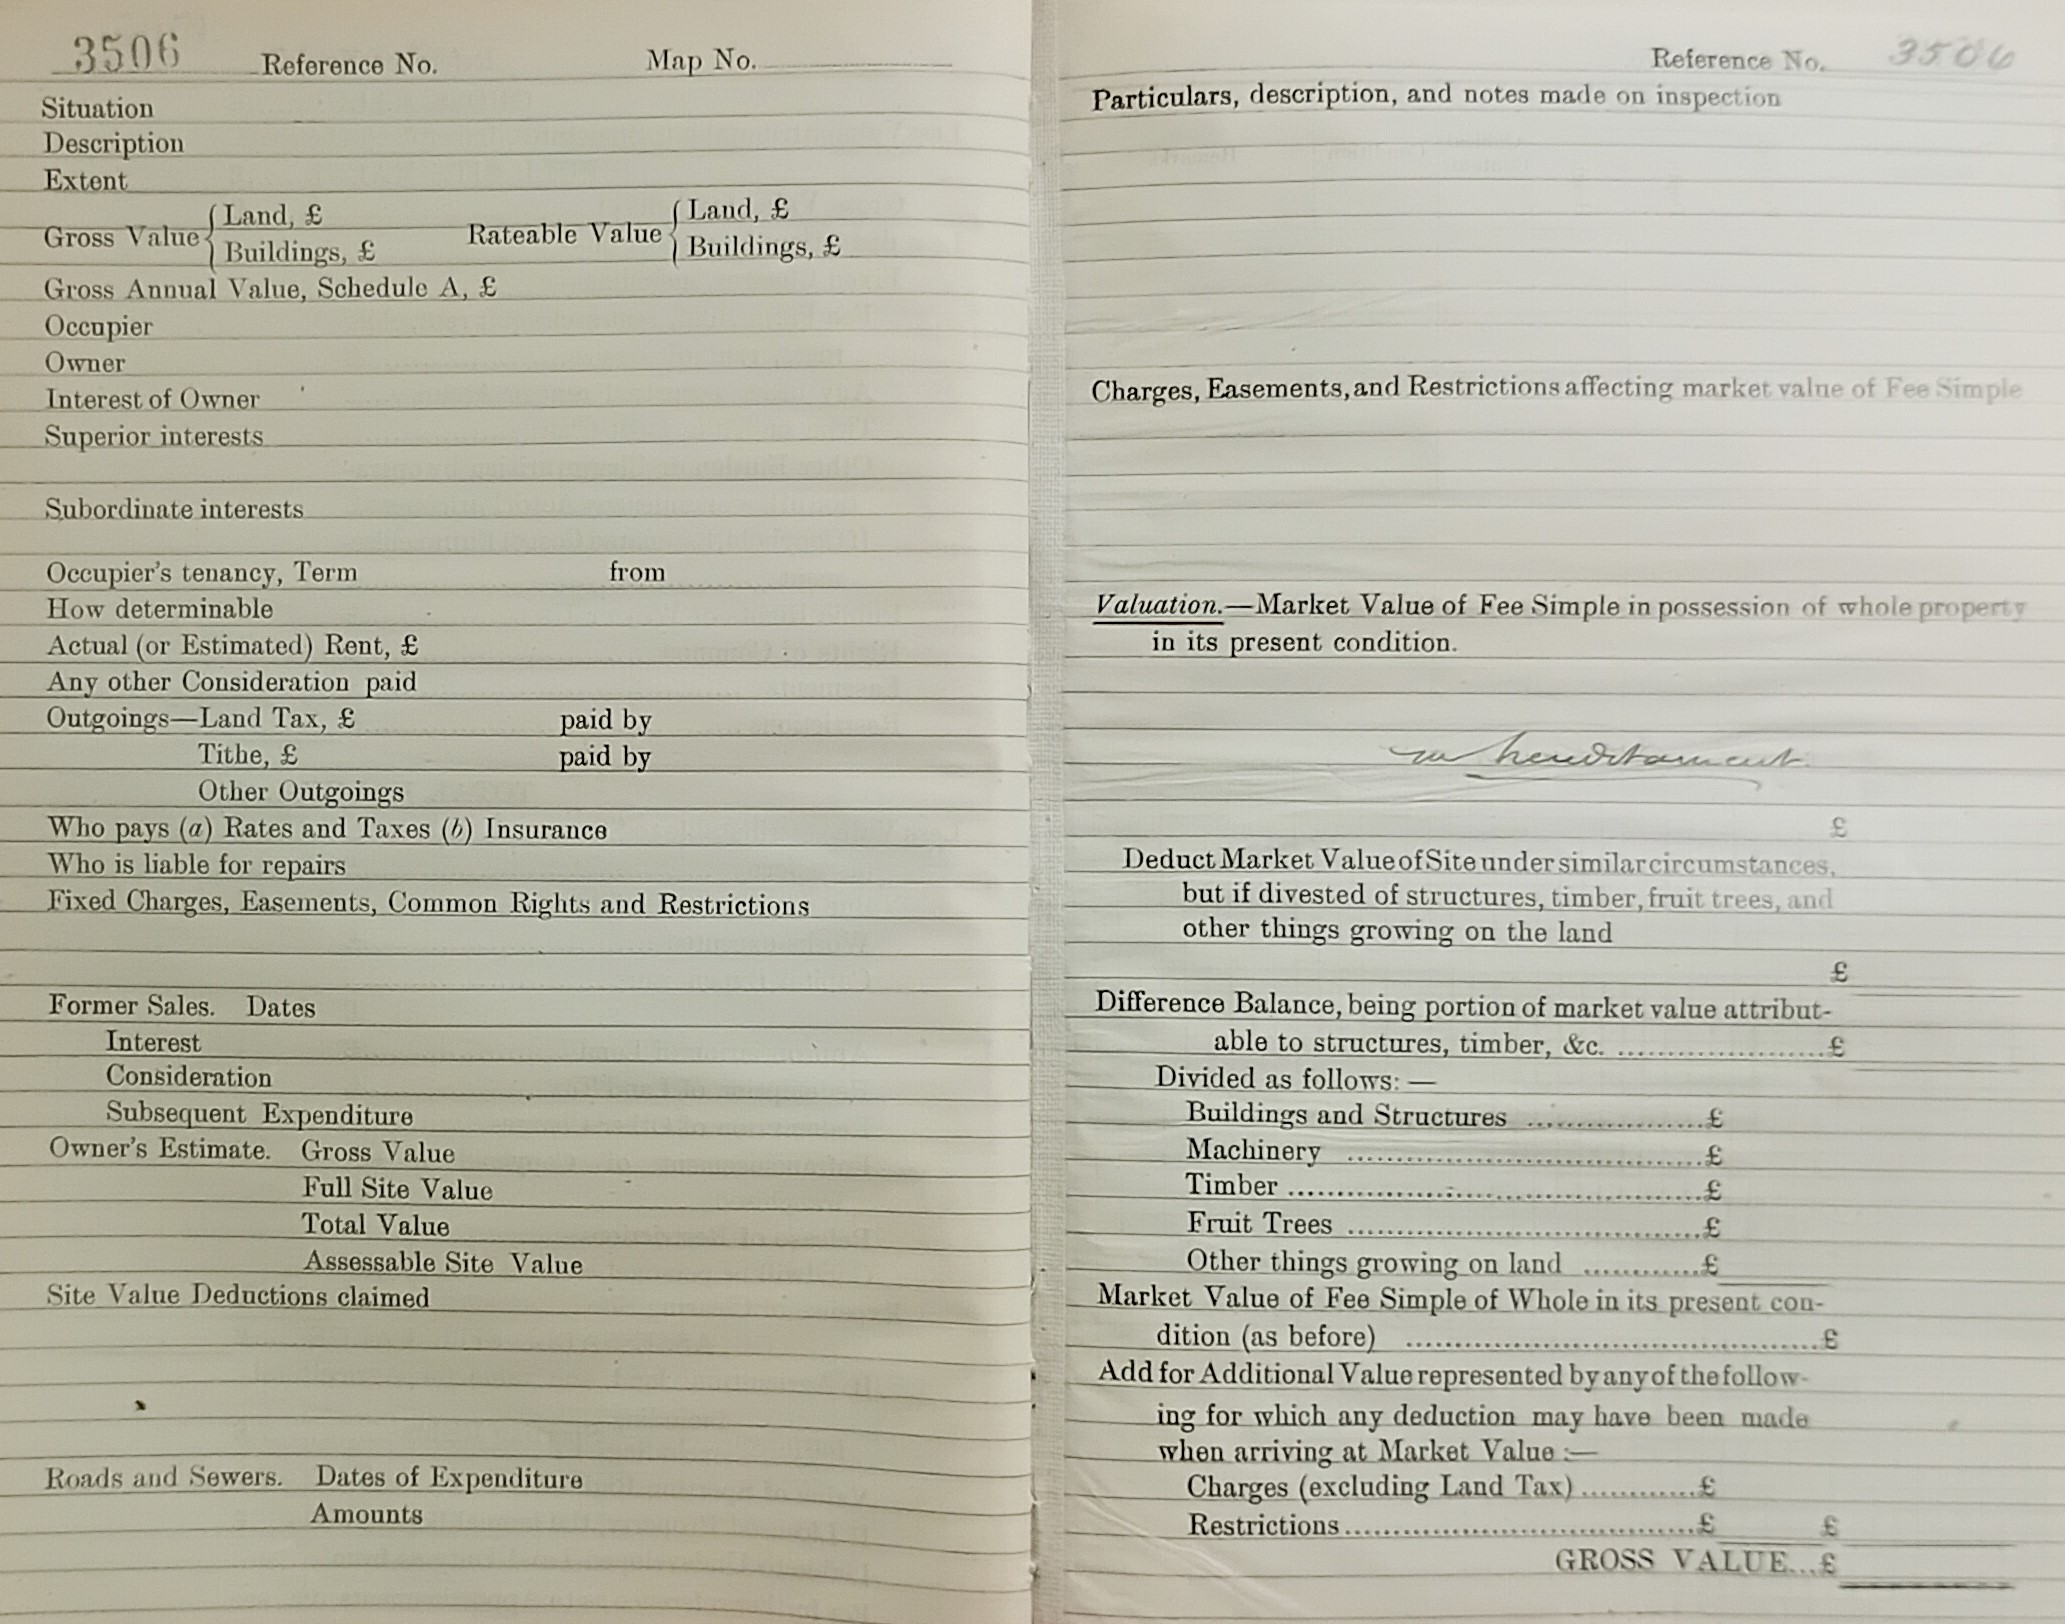 3506 Reference No. Map No.
Situation
Description
Extent
Gross Value { Land, £ Rateable Value { Land, £
Buildings, £ Buildings, £
Gross Annual Value, Schedule A, £
Occupier
Owner
Interest of Owner
Superior interests
Subordinate interests
Occupier's tenancy, Term from
How determinable
Actual (or Estimated) Rent, £
Any other Consideration paid
Outgoings—Land Tax, £ paid by
Tithe, £ paid by
Other Outgoings
Who pays (a) Rates and Taxes (b) Insurance
Who is liable for repairs
Fixed Charges, Easements, Common Rights and Restrictions
Former Sales. Dates
Interest
Consideration
Subsequent Expenditure
Owner's Estimate. Gross Value
Full Site Value
Total Value
Assessable Site Value
Site Value Deductions claimed
Roads and Sewers. Dates of Expenditure
Amounts
Reference No. 3506
Particulars, description, and notes made on inspection
Charges, Easements, and Restrictions affecting market value of Fee Simple
Valuation.—Market Value of Fee Simple in possession of whole property
in its present condition.
hereditament
£
Deduct Market Value of Site under similar circumstances,
but if divested of structures, timber, fruit trees, and
other things growing on the land
£
Difference Balance, being portion of market value attribut-
able to structures, timber, &c. ..................... £
Divided as follows:—
Buildings and Structures .................. £
Machinery .................................... £
Timber .......................................... £
Fruit Trees .................................... £
Other things growing on land ............ £
Market Value of Fee Simple of Whole in its present con-
dition (as before) .......................................... £
Add for Additional Value represented by any of the follow-
ing for which any deduction may have been made
when arriving at Market Value :—
Charges (excluding Land Tax) ............ £
Restrictions ................................... £ £
GROSS VALUE... £